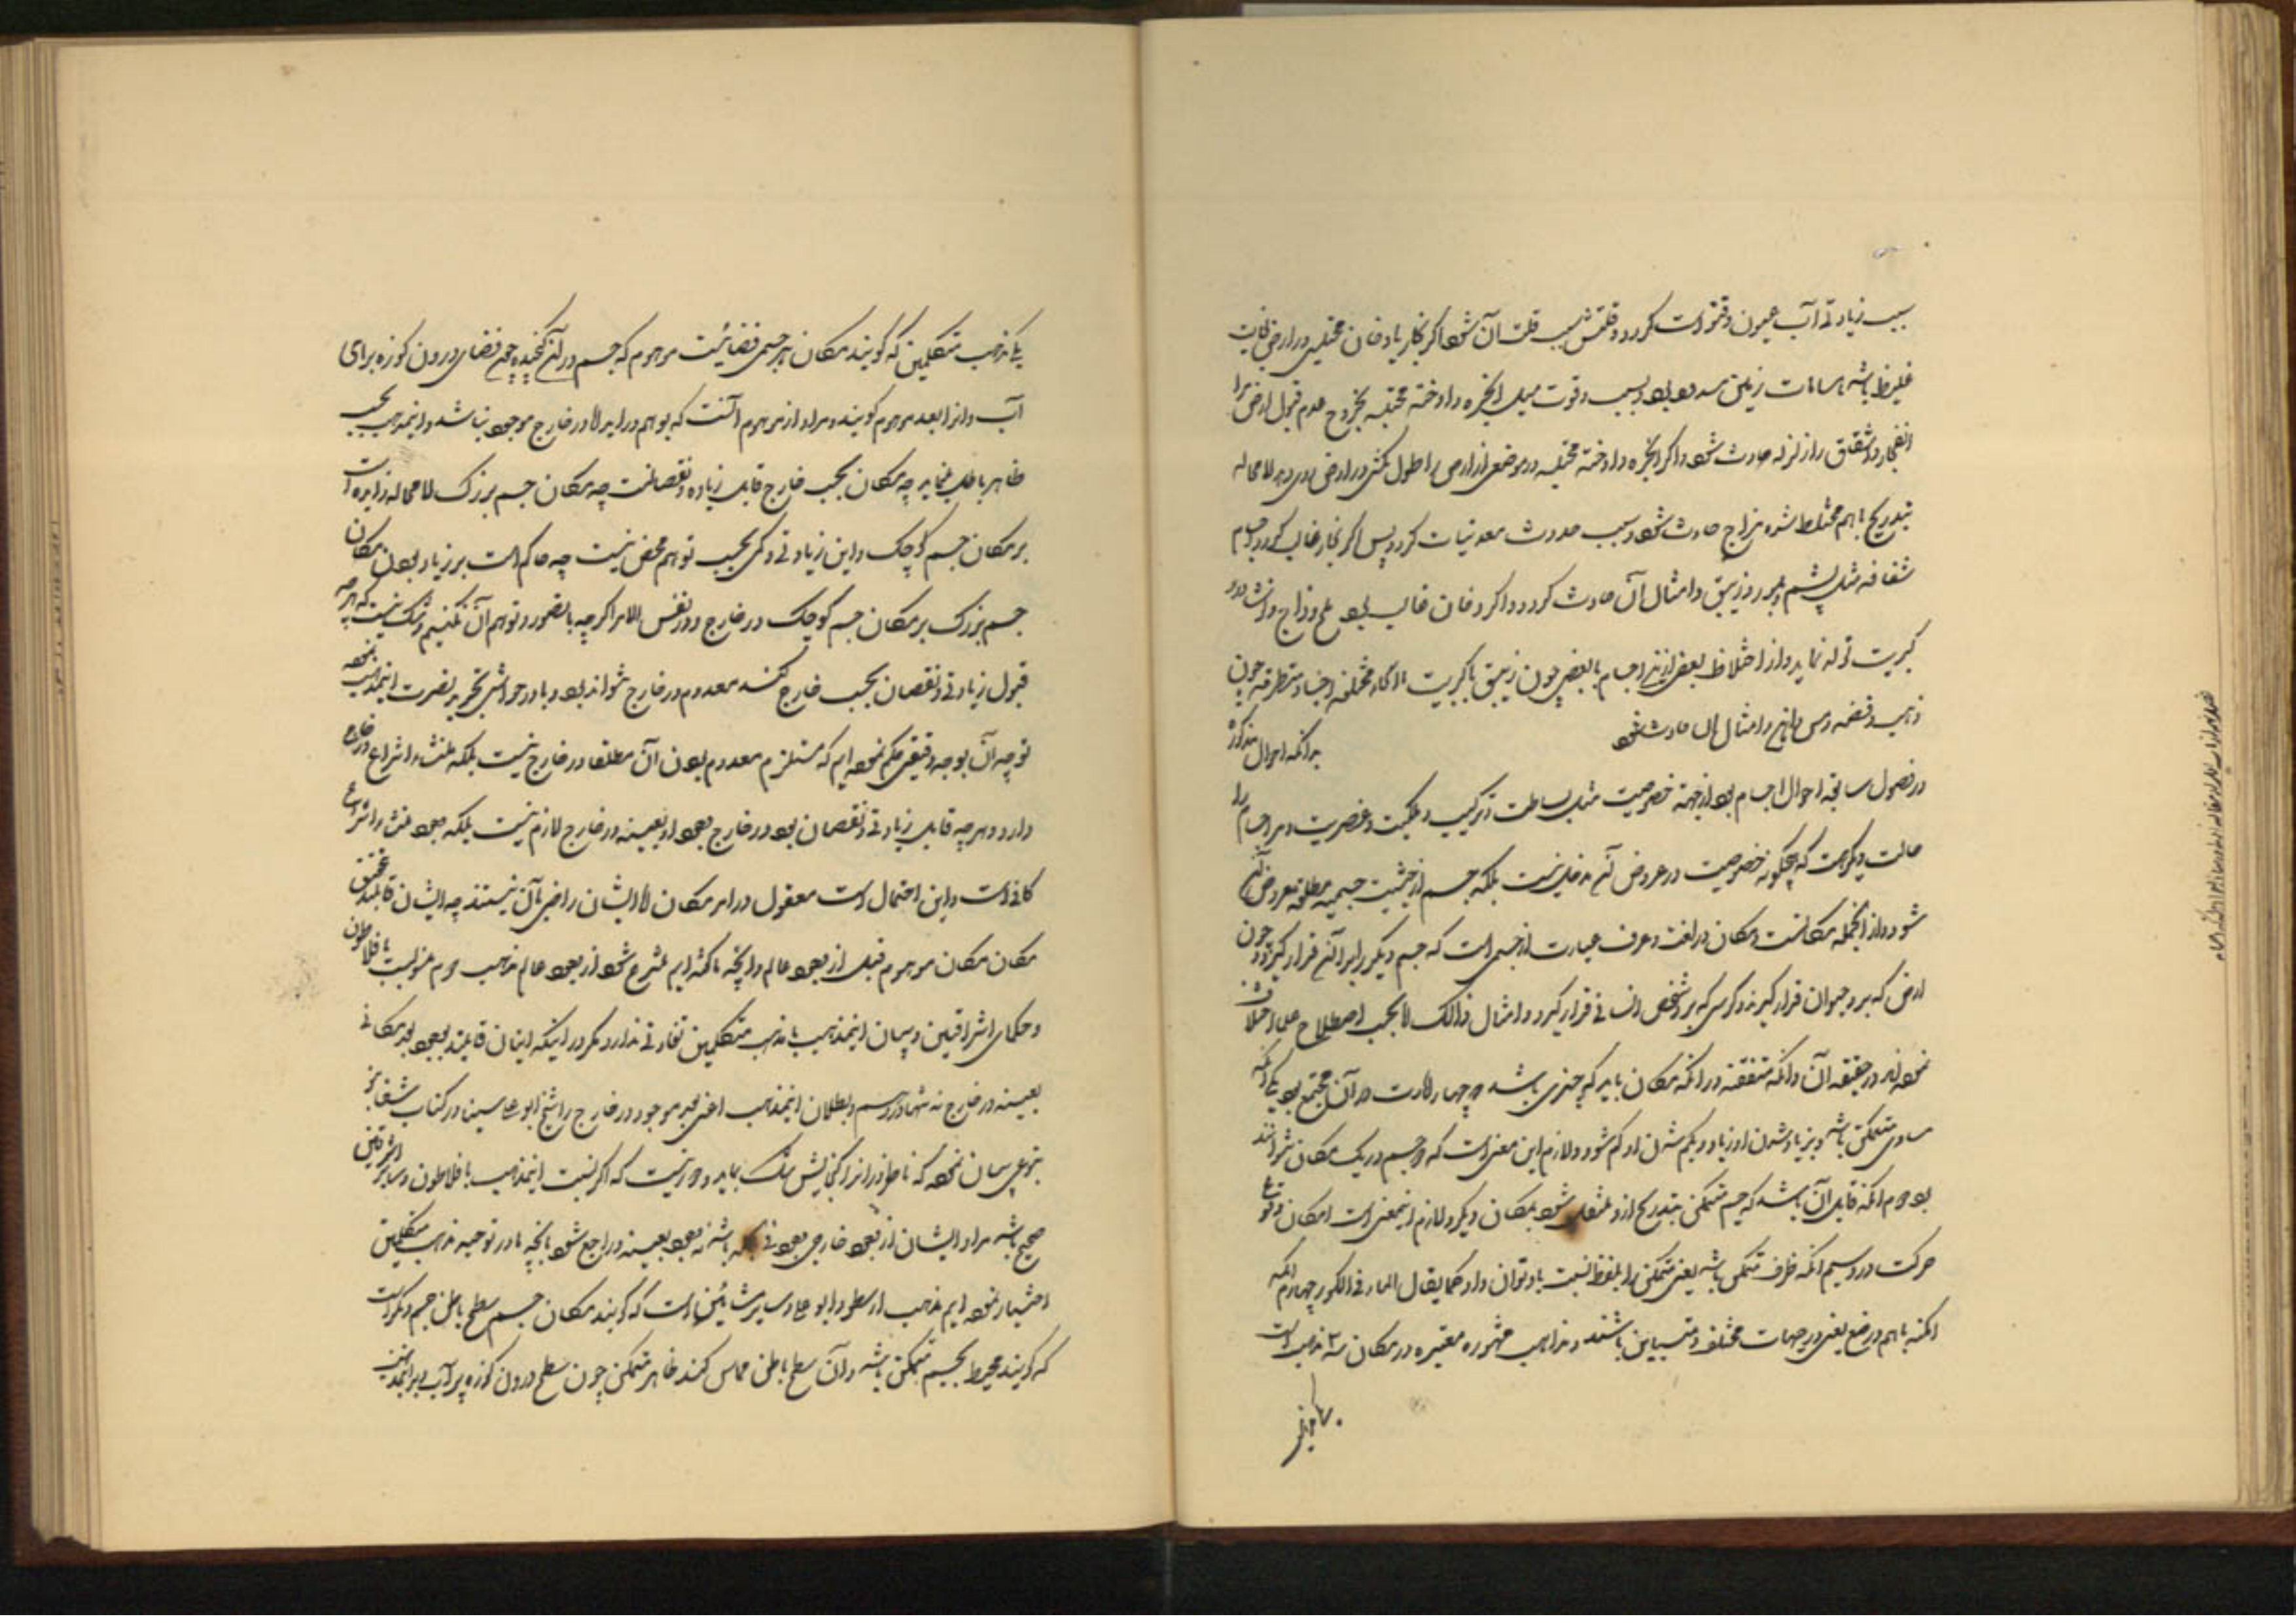 سبب زیادتی آب عیون و قنوات کردد و قلتش سبب قلت آن شود اکر بخار یا دخان محتبس در ارض غایت
غلیظ باشد و مسامات زمین مسدود بود بسبب وقوت میل ابخره و ادخنه محتبسه بخروج و عدم قبول ارض مر
انفجار و انشقاق را زلزله حادث شود و اکر ابخره و ادخنه محتبسه در موضعی از ارض را طول مکثی در ارض روی دهد لا محاله
بتدریج باهم مختلط شده مزاج حادث شود و سبب حدوث معدنیات کردد پس اکر بخار غالب کردد اجسام
شفافه مثل یشم و بلور و زیبق و امثال آن حادث کردد و اکر دخان غالب بود ملح و زاج و نشادر و
کبریت تولد نماید و از اختلاط بعضی از این اجسام با بعضی چون زیبق با کبریت انحاء مختلفه اجساد متطرقه چون
ذهب و فضه و مس و امثال آن حادث شود بدانکه احوال مذکوره
در فصول سابقه احوال اجسام بود از جهة خصوصیت مثل بساطت و ترکیب و فلکیت و عنصریت و مر اجسام را
حالت دیکر است که هیچکونه خصوصیت در عروض آن مدخلی نیست بلکه جسم از حیثیت جسمیه مطلقه معروض آن
شود و از انجمله مکانست و مکان در لغت و عرف عبارت از جسمی است که جسم دیکر را بر آن قرار کیرد چون
ارض که بر او حیوان قرار کیرد و کرسی که بر او شخص انسانی قرار کیرد و امثال ذالک لا بحسب اصطلاح علما اختلاف
نموده‌اند در حقیقة آن و انکه متفقند در انکه مکان باید که چیزی باشد که چهار امارت در آن مجتمع بود یکی آنکه
مساوی متمکن باشد و بزیاد شدن او زیاد و بکم شدن او کم شود و لازم این معنی است که دو جسم در یک مکان نتوانند
بود دوم انکه قابل آن باشد که جسم متمکن بتدریج ازو منتقل شود بمکان دیکر و لازم اینمعنی است امکان وقوع
حرکت درو سیم انکه ظرف متمکن باشد یعنی متمکن را بلفظ فی نسبت باو توان داد کما یقال الماء فی الکوز چهارم انکه
امکنه باهم در وضع یعنی در جهات مختلف و متباین باشند و مذاهب مشهوره معتبره در مکان سه مذهب است
یکی مذهب متکلمین که کویند مکان هر جسمی فضائیست موهوم که جسم در آن کنجیده چون فضای درون کوزه برای
آب و انرا بعد موهوم کویند و مراد از موهوم آنست که بوهم در اید لا در خارج موجود نباشد و اینمذهب بحسب
ظاهر باطل مینماید چه مکان بحسب خارج قابل زیاده و نقصانست چه مکان جسم بزرک لا محاله زاید است
بر مکان جسم کوچک و این زیادتی و کمی بحسب توهم محض نیست چه حاکم است بر زیاد بودن مکان
جسم بزرک بر مکان جسم کوچک در خارج و در نفس الامر اکر چه ما تصور و توهم آن نکنیم و شک نیست که هر چه
قبول زیادتی و نقصان بحسب خارج کند معدوم در خارج نتواند بود و ما در حواشی تجرید نصرت اینمذهب نموده
توجیه آن بوجه دقیقی محکم نموده‌ایم که مستلزم معدوم بودن آن مطلقا در خارج نیست بلکه منشاء انتزاع در خارج
دارد و هر چه قابل زیادتی و نقصان بود در خارج وجود او بعینه در خارج لازم نیست بلکه وجود منشاء انتزاع
کافی است و این احتمال است معقول در امر مکان لا ایشان راضی بآن نیستند چه ایشان قایلند بتحقق
مکان موهوم قبل از وجود عالم و انچه ما کفته‌ایم منتزع شود از وجود عالم مذهب دوم منسوبست بافلاطون
و حکمای اشراقیین و میان اینمذهب با مذهب متکلمین تفاوتی ندارد مکر در اینکه اینان قایلند بوجود بعد مکانی
بعینه در خارج نه بتوهم و بطلان اینمذهب اعنی بعد موجود در خارج را شیخ ابو علی سینا در کتاب شفا
بنوعی بیان نموده که ناظر در انرا کنجایش شک نماید و دور نیست که اکر نسبت اینمذهب بافلاطون و سایر اشراقیین
صحیح باشد مراد ایشان از وجود خارجی وجود فی باشد نه وجود بعینه و راجع شود بانچه ما در توجیه مذهب متکلمین
اختیار نموده‌ایم مذهب ارسطو و ابو علی و سایر مشائین است که کویند مکان جسم سطح باطن جسم دیکر است
که کویند محیط بجسم متمکن باشد و آن سطح باطن مماس کند ظاهر متمکن چون سطح درون کوزه پر آب و بر اینمذهب